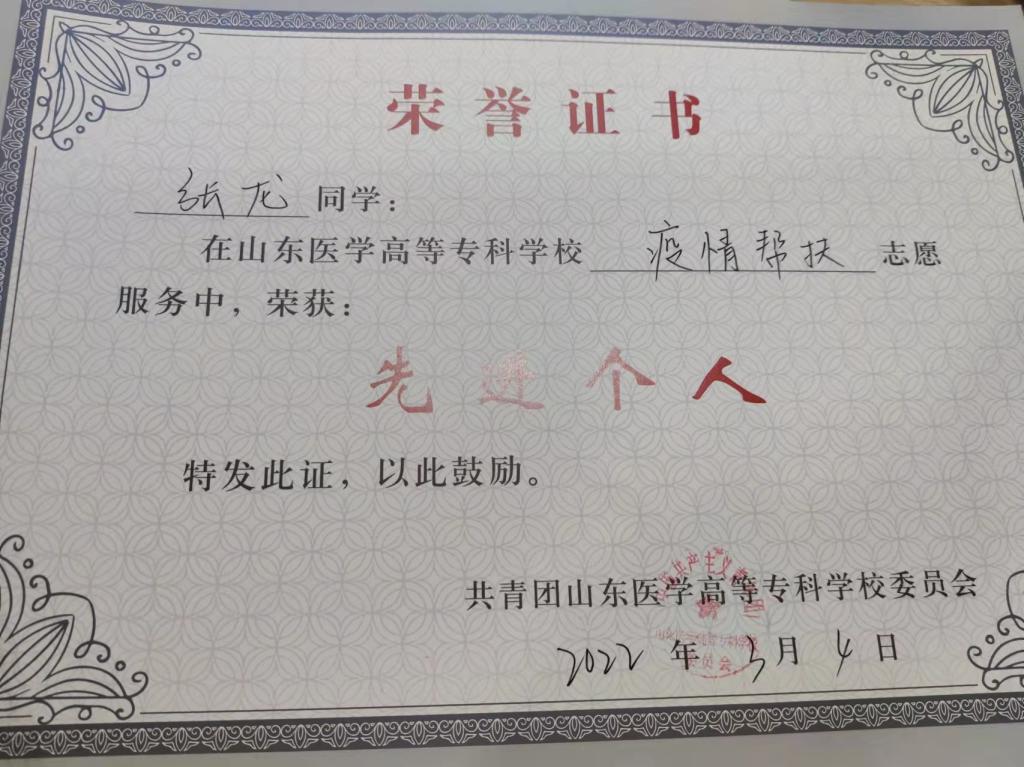 荣誉证书
张龙同学：
在山东医学高等专科学校疫情帮扶志愿
服务中，荣获：
先进个人
特发此证，以此鼓励。
共青团山东医学高等专科学校委员会
2022年3月4日